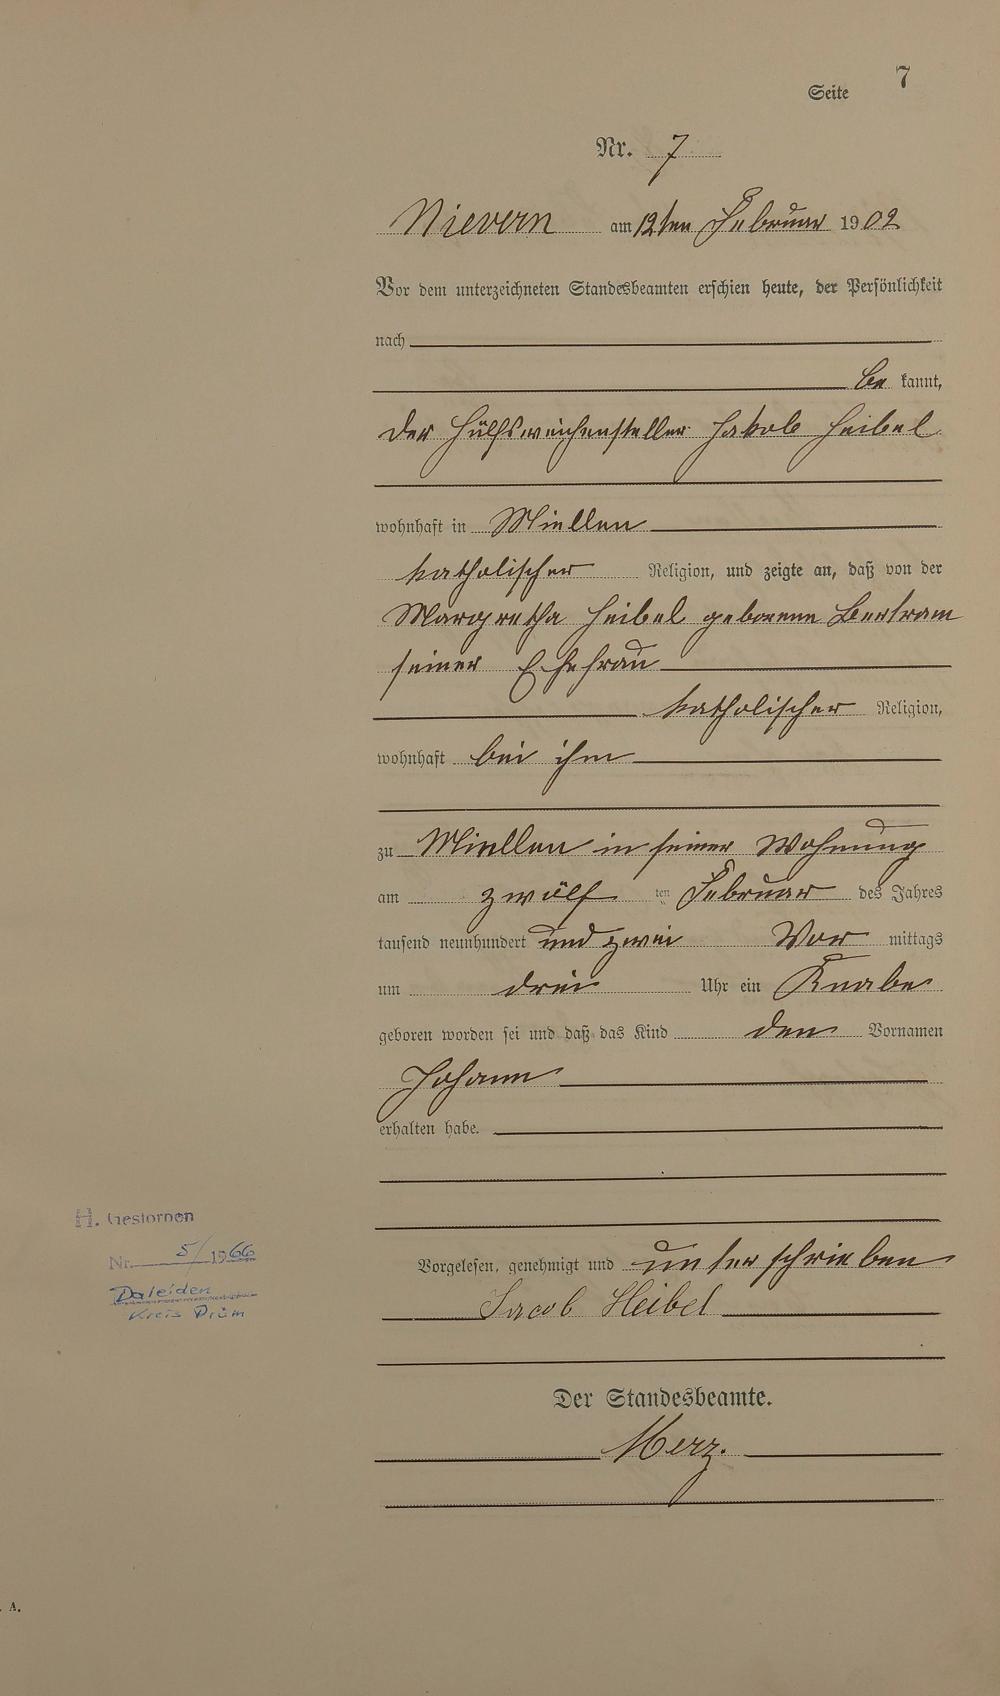 Seite 7
Nr. 7
Nievern am 12ten Februar 1902
Vor dem unterzeichneten Standesbeamten erschien heute, der Persönlichkeit
nach
be kannt,
der Hülfsweichensteller Jakob Heibel
wohnhaft in Miellen
katholischer Religion, und zeigte an, daß von der
Margretha Heibel geborene Bertram
seiner Ehefrau
katholischer Religion,
wohnhaft bei ihm
zu Miellen in seiner Wohnung
am zwölf ten Februar des Jahres
tausend neunhundert und zwei Vor mittags
um drei Uhr ein Knabe
geboren worden sei und daß das Kind den Vornamen
Johann
erhalten habe.
H. Gestorben
Nr. 5/1966
Daleiden
Kreis Prüm
Vorgelesen, genehmigt und unterschrieben
Jacob Heibel
Der Standesbeamte.
Merz.
A.